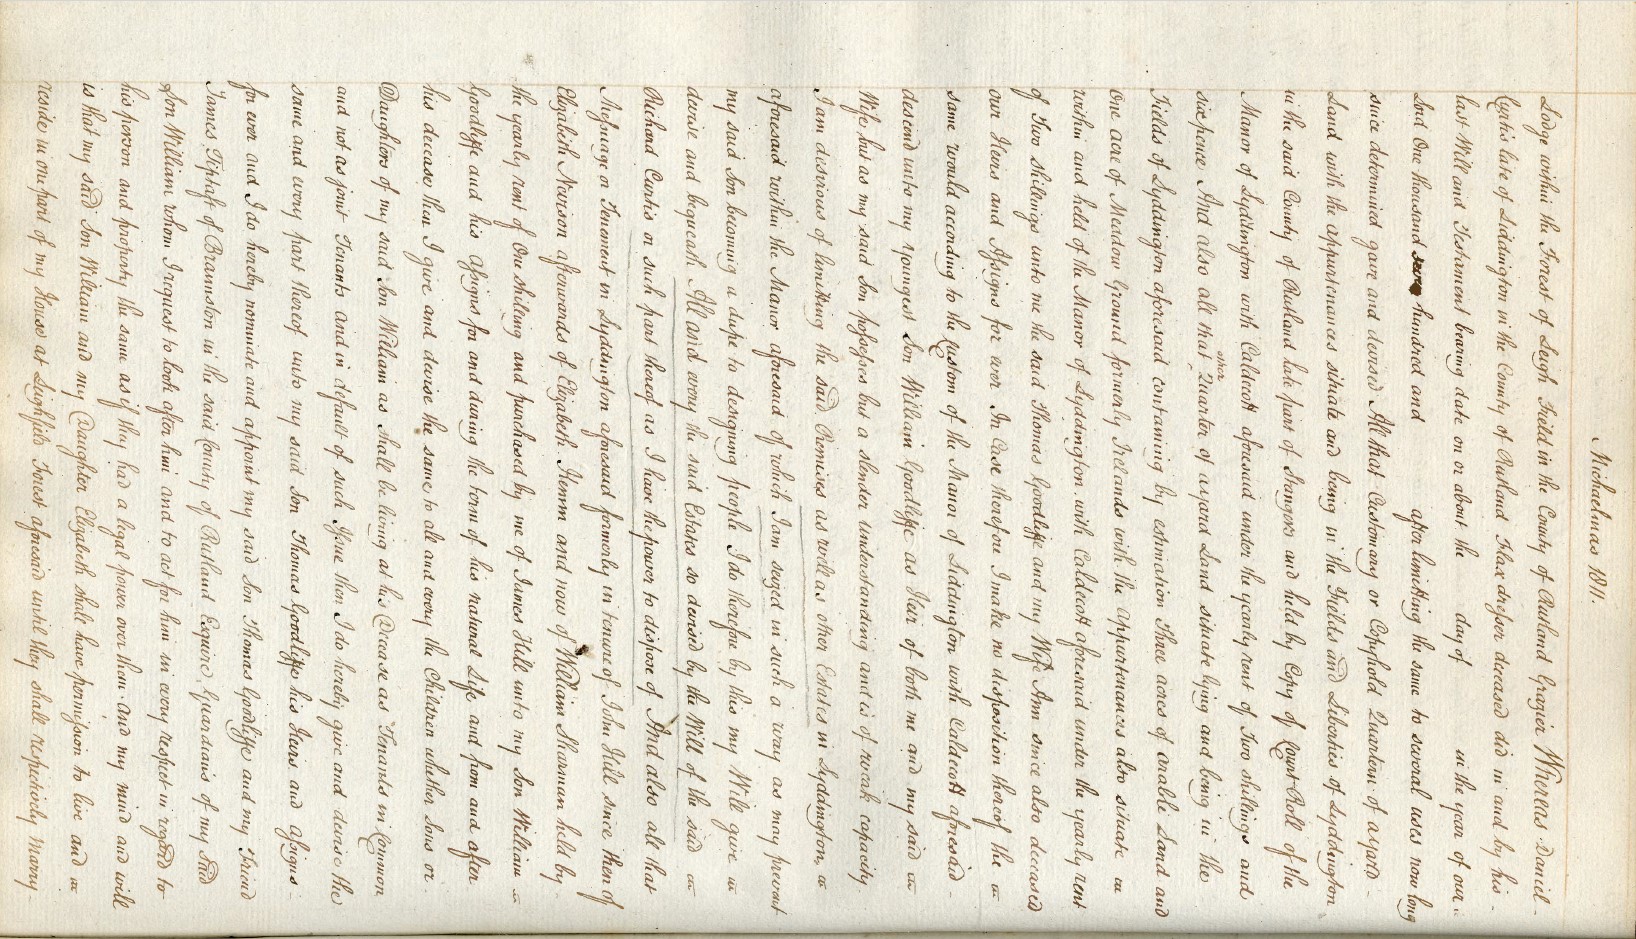 Michaelmas 1811.
Lodge within the Forest of Leigh Field in the County of Rutland Grazier Whereas Daniel
Curtis late of Liddington in the County of Rutland Flax dresser deceased did in and by his
last Will and Testament bearing date on or about the day of in the year of our
Lord One thousand hundred and after limitting the same to several uses now long
since determined gave and devised All that Customary or Copyhold Quartern of a yard
Land with the appurtenances situate and being in the Fields and Liberties of Lyddington
in the said County of Rutland late part of Grangers and held by Copy of Court Roll of the
Manor of Lyddington with Caldecott aforesaid under the yearly rent of Two shillings and
sixpence And also all that other Quarter of a yard Land situate lying and being in the
Fields of Lyddington aforesaid containing by estimation Three acres of arable Land and
One acre of Meadow Ground formerly Irelands with the Appurtenances also situate
within and held of the Manor of Lyddington with Caldecott aforesaid under the yearly rent
of Two shillings unto me the said Thomas Goodliffe and my Wife Ann since also deceased
our Heirs and Assigns for ever In Case therefore I make no disposition thereof the
same would according to the Custom of the Manor of Liddington with Caldecott aforesaid
descend unto my youngest Son William Goodliffe as Heir of both me and my said
Wife but as my said Son possesses but a slender Understanding and is of weak capacity
I am desirous of limitting the said Premises as well as other Estates in Lyddington,
aforesaid within the Manor aforesaid of which I am seized in such a way as may prevent
my said Son becoming a dupe to designing people I do therefore by this my Will give
devise and bequeath All and every the said Estates so devised by the Will of the said
Richard Curtis or such part thereof as I have the power to dispose of And also all that
Messuage or Tenement in Lyddington aforesaid formerly in tenure of John Hill since then of
Elizabeth Neverson afterwards of Elizabeth and now of William Sharman held by
the yearly rent of One shilling and purchased by me of James Hill unto my Son William
Goodliffe and his Assigns for and during the term of his natural Life and from and after
his decease then I give and devise the same to all and every the Children whether Sons or
Daughters of my said Son William as shall be living at his Decease as Tenants in Common
and not as joint Tenants and in default of such Issue then I do hereby give and devise the
same and every part thereof unto my said Son Thomas Goodliffe his Heirs and Assigns
for ever and I do hereby nominate and appoint my said Son Thomas Goodliffe and my Friend
James Tiptaft of Braunston in the said County of Rutland Esquire, Guardians of my said
Son William whom I request to look after him and to act for him in every respect in regard to
his person and property the same as if they had a legal power over them and my mind and will
is that my said Son William and my Daughter Elizabeth shall have permission to live and
reside in one part of my House at Leighfield Forest aforesaid until they shall respectively Marry